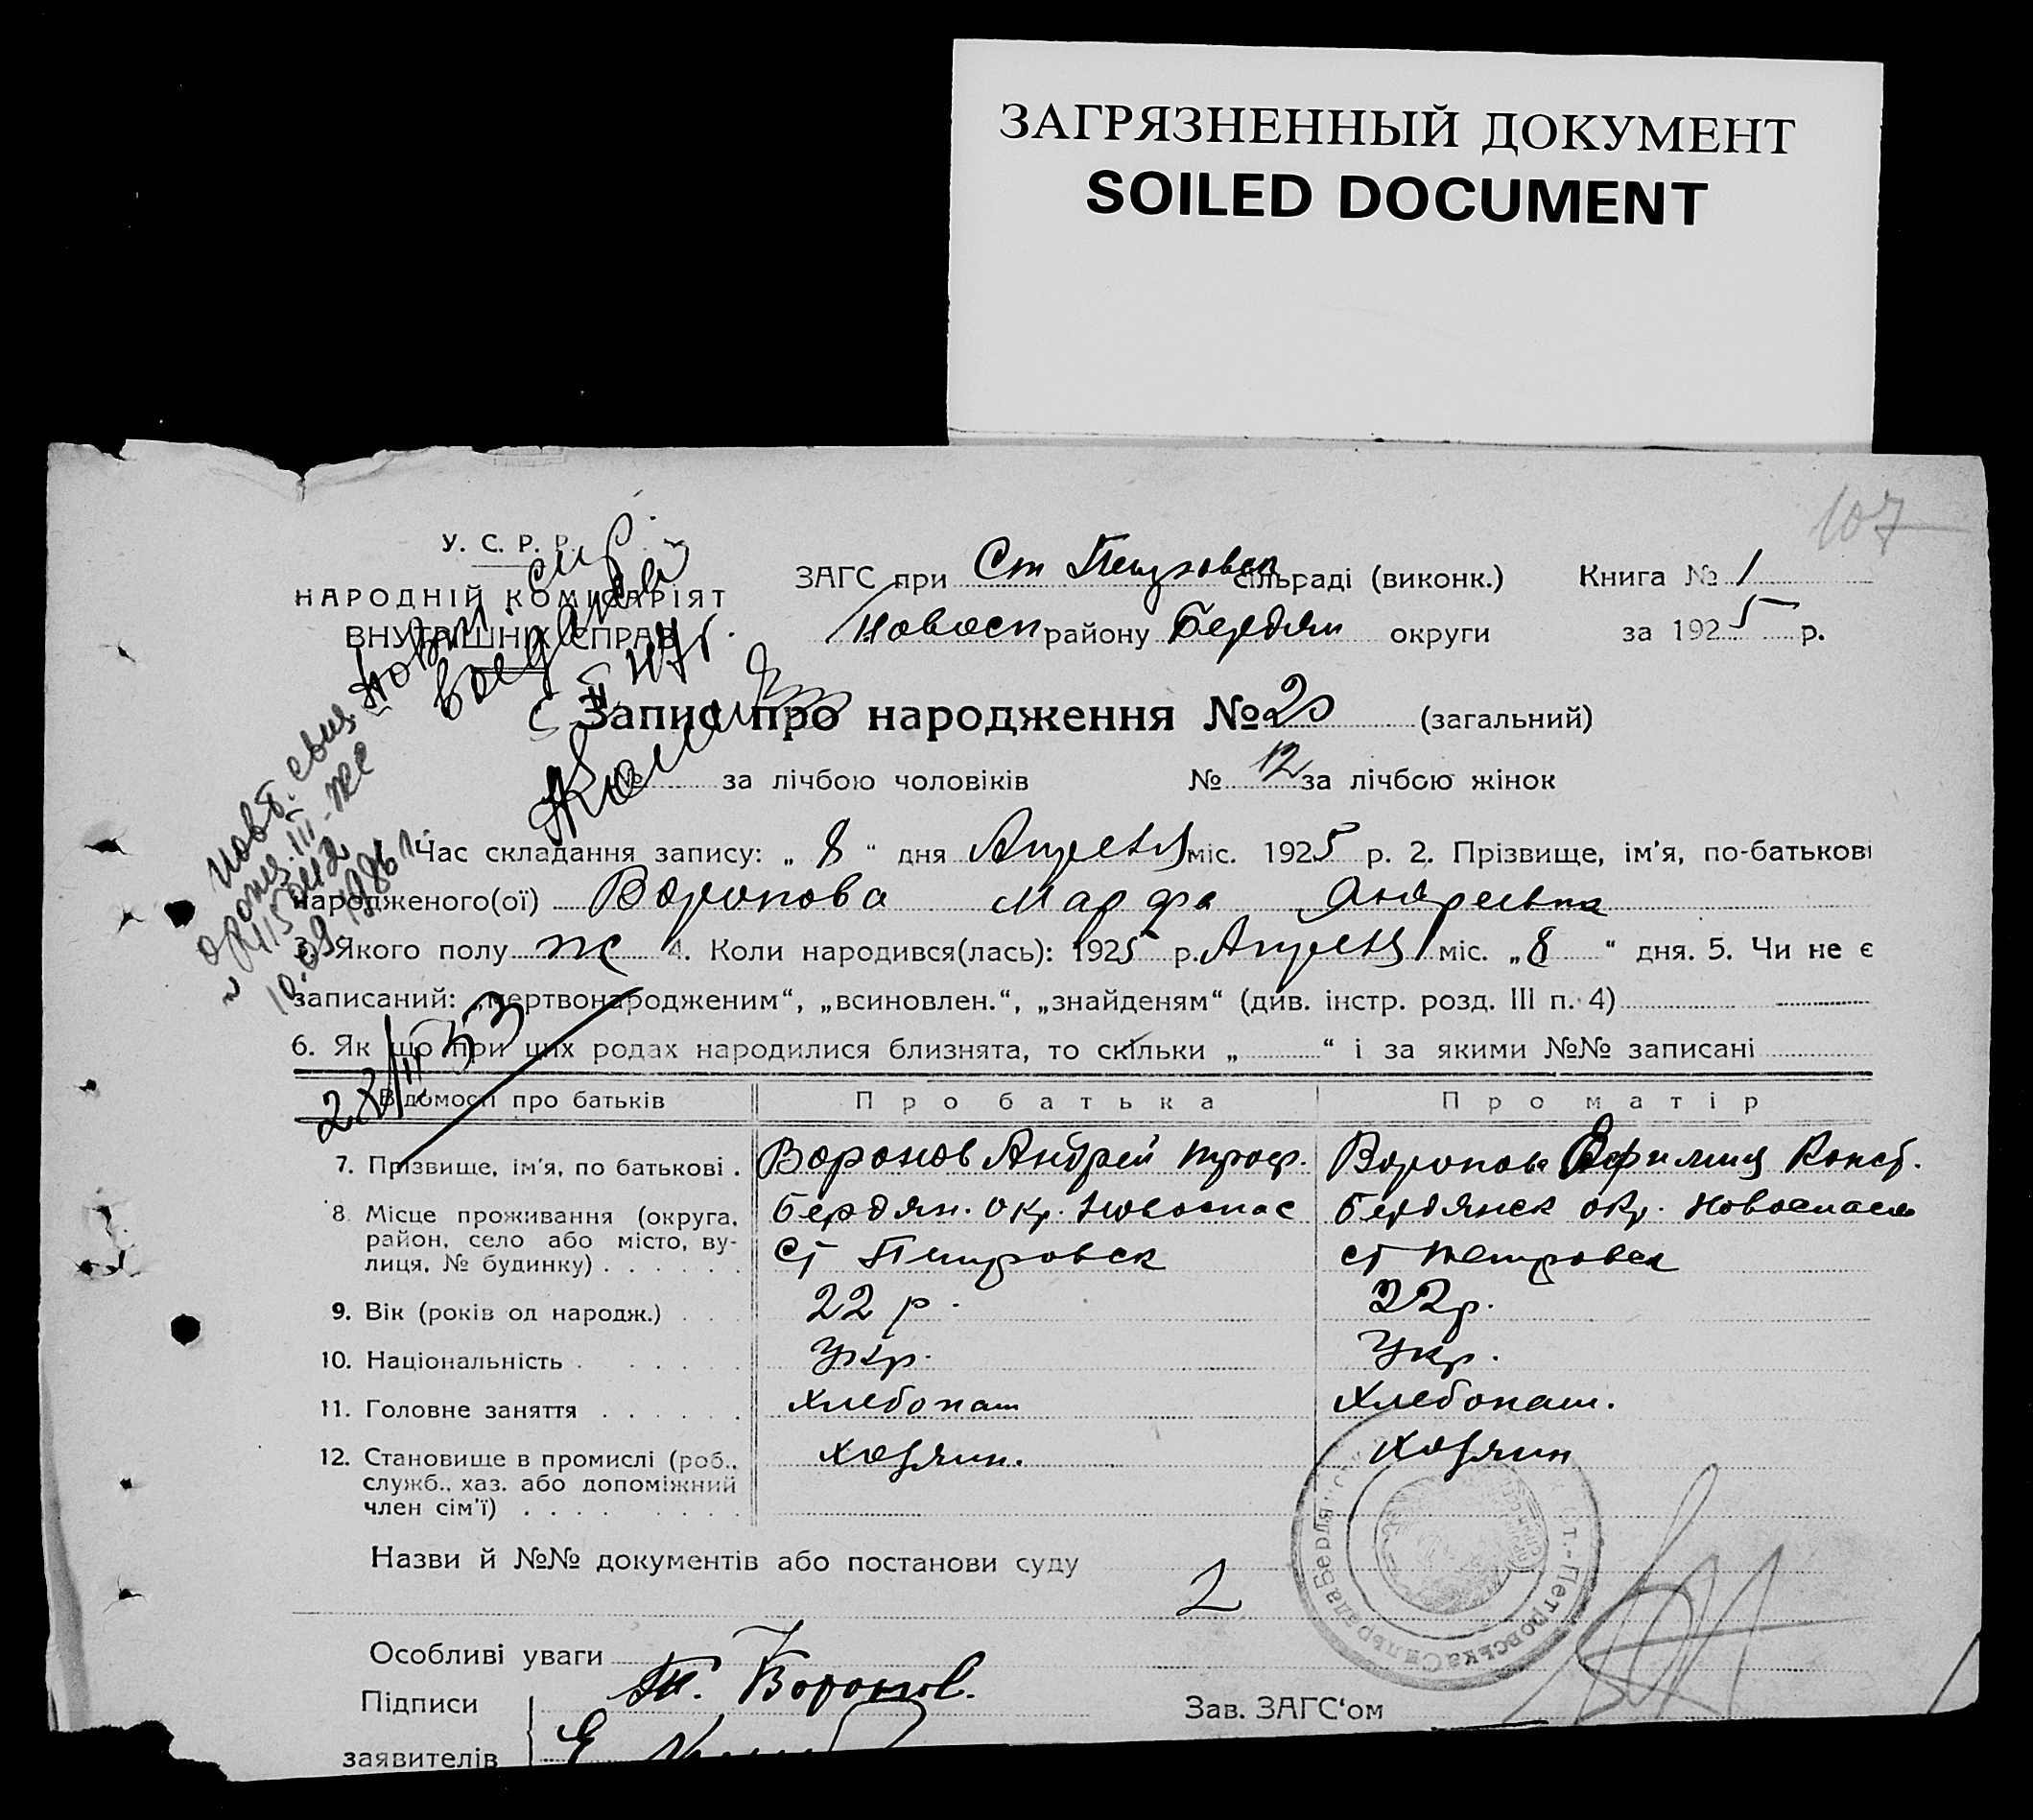 ЗАГРЯЗНЕННЫЙ ДОКУМЕНТ
SOILED DOCUMENT
107
У. С. Р. Р.
НАРОДНІЙ КОМИСАРІЯТ
ВНУТРІШНІХ СПРАВ
ЗАГС при Ст Петровск сільраді (виконк.) Книга № 1
Новосп району Бердян округи за 1925 р.
Запис про народження № 20 (загальний)
№ за лічбою чоловіків № 12 за лічбою жінок
Час складання запису: „ 8 “ дня Апреля міс. 1925 р. 2. Прізвище, ім'я, по-батькові
народженого(ої) Воронова Марфа Андреевна
3. Якого полу ж 4. Коли народився(лась): 1925 р. Апреля міс. „ 8 “ дня. 5. Чи не є
записаний: „мертвонародженим“, „всиновлен.“, „знайденям“ (див. інстр. розд. III п. 4)
6. Як що при цих родах народилися близнята, то скільки „ “ і за якими №№ записані
Відомості про батьків Про батька Про матір
7. Прізвище, ім'я, по батькові . Воронов Андрей Троф. Воронова Ефимия Конст.
8. Місце проживання (округа, район, село або місто, вулиця, № будинку) Бердян. окр. Новоспас Бердянск окр. Новоспасов
Ст Петровск ст Петровск
9. Вік (років од народж.) 22 р. 22 р.
10. Національність Укр. Укр.
11. Головне заняття Хлебопаш Хлебопаш.
12. Становище в промислі (роб., служб., хаз. або допоміжний член сім'ї) хозяин. хозяин
Назви й №№ документів або постанови суду
2
Особливі уваги
Підписи Воронов.
заявителів
Зав. ЗАГС'ом
Новт. свид.
10.09.1986 г.